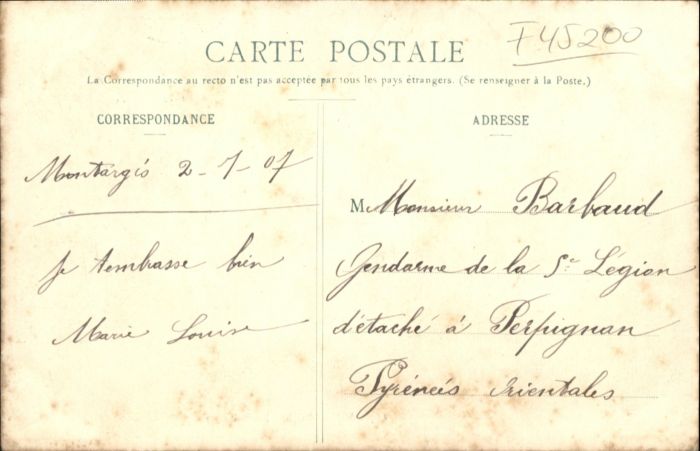 F45200
CARTE POSTALE
La Correspondance au recto n'est pas acceptée par tous les pays étrangers. (Se renseigner à la Poste.)
CORRESPONDANCE
Montargis 2-7-07
je t'embrasse bien
Marie Louise
ADRESSE
M Monsieur Barbaud
Gendarme de la 5e Légion
détaché à Perpignan
Pyrénées Orientales